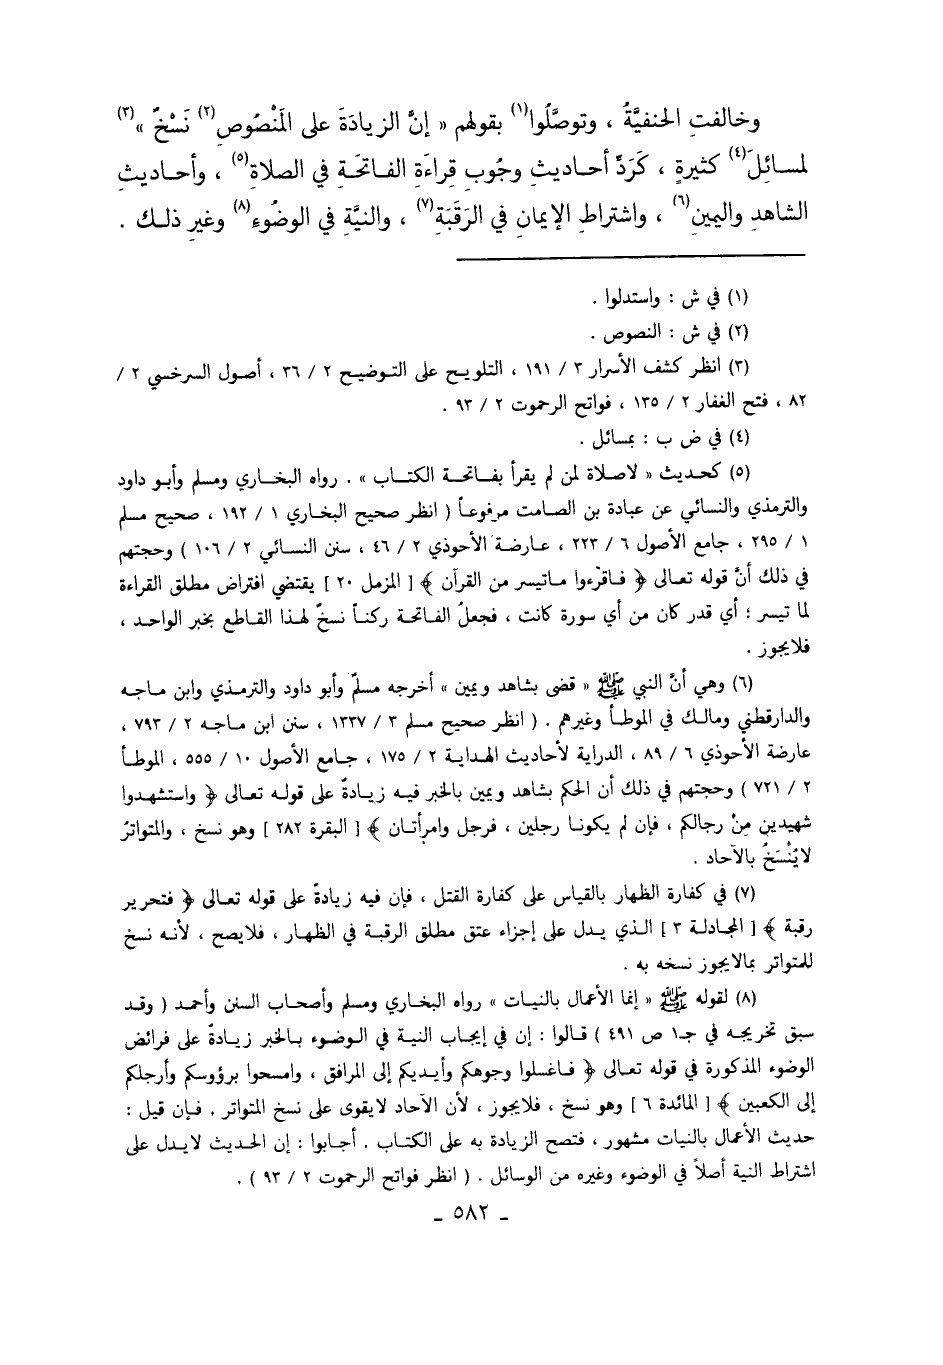 وخالفتِ الحنفيَّةُ ، وتوصَّلُوا(١) بقولهم « إنَّ الزيادَةَ على المَنْصُوصِ(٢) نَسْخٌ »(٣)
لمسائِلَ(٤) كثيرةٍ ، كَرَدِّ أحاديثِ وجُوبِ قِراءَةِ الفاتحَةِ في الصلاةِ(٥) ، وأحاديثِ
الشاهدِ واليمينِ(٦) ، واشتراطِ الإيمانِ في الرَقَبَةِ(٧) ، والنيَّةِ في الوضُوءِ(٨) وغيرِ ذلك .
(١) في ش : واستدلوا .
(٢) في ش : النصوص .
(٣) انظر كشف الأسرار ٣ / ١٩١ ، التلويح على التوضيح ٢ / ٣٦ ، أصول السرخسي ٢ /
٨٢ ، فتح الغفار ٢ / ١٣٥ ، فواتح الرحموت ٢ / ٩٣ .
(٤) في ض ب : بمسائل .
(٥) كحديث « لاصلاة لمن لم يقرأ بفاتحة الكتاب » . رواه البخاري ومسلم وأبو داود
والترمذي والنسائي عن عبادة بن الصامت مرفوعاً ( انظر صحيح البخاري ١ / ١٩٢ ، صحيح مسلم
١ / ٢٩٥ ، جامع الأصول ٦ / ٢٢٣ ، عارضة الأحوذي ٢ / ٤٦ ، سنن النسائي ٢ / ١٠٦ ) وحجتهم
في ذلك أنَّ قوله تعالى ﴿ فاقرءوا ماتيسر من القرآن ﴾ [ المزمل ٢٠ ] يقتضي افتراض مطلق القراءة
لما تيسر ؛ أي قدر كان من أي سورة كانت ، فجعلُ الفاتحة ركناً نسخٌ لهذا القاطع بخبر الواحد ،
فلايجوز .
(٦) وهي أنَّ النبي ﷺ « قضى بشاهد ويمين » أخرجه مسلمٌ وأبو داود والترمذي وابن ماجه
والدارقطني ومالك في الموطأ وغيرهم . ( انظر صحيح مسلم ٣ / ١٣٣٧ ، سنن ابن ماجه ٢ / ٧٩٣ ،
عارضة الأحوذي ٦ / ٨٩ ، الدراية لأحاديث الهداية ٢ / ١٧٥ ، جامع الأصول ١٠ / ٥٥٥ ، الموطأ
٢ / ٧٢١ ) وحجتهم في ذلك أن الحكم بشاهد ويمين بالخبر فيه زيادةٌ على قوله تعالى ﴿ واستشهدوا
شهيدين مِنْ رجالكم ، فإن لم يكونا رجلين ، فرجل وامرأتان ﴾ [ البقرة ٢٨٢ ] وهو نسخ ، والمتواترُ
لايُنْسَخُ بالآحاد .
(٧) في كفارة الظهار بالقياس على كفارة القتل ، فإن فيه زيادةً على قوله تعالى ﴿ فتحرير
رقبة ﴾ [ المجادلة ٣ ] الذي يدل على إجزاء عتق مطلق الرقبة في الظهار ، فلايصح ، لأنه نسخ
للمتواتر بمالايجوز نسخه به .
(٨) لقوله ﷺ « إنما الأعمال بالنيات » رواه البخاري ومسلم وأصحاب السنن وأحمد ( وقد
سبق تخريجه في جـ١ ص ٤٩١ ) قالوا : إن في إيجاب النية في الوضوء بالخبر زيادةً على فرائض
الوضوء المذكورة في قوله تعالى ﴿ فاغسلوا وجوهكم وأيديكم إلى المرافق ، وامسحوا برؤوسكم وأرجلكم
إلى الكعبين ﴾ [ المائدة ٦ ] وهو نسخ ، فلايجوز ، لأن الآحاد لايقوى على نسخ المتواتر . فإن قيل :
حديث الأعمال بالنيات مشهور ، فتصح الزيادة به على الكتاب . أجابوا : إن الحديث لايدل على
اشتراط النية أصلاً في الوضوء وغيره من الوسائل . ( انظر فواتح الرحموت ٢ / ٩٣ ) .
ـ ٥٨٢ ـ